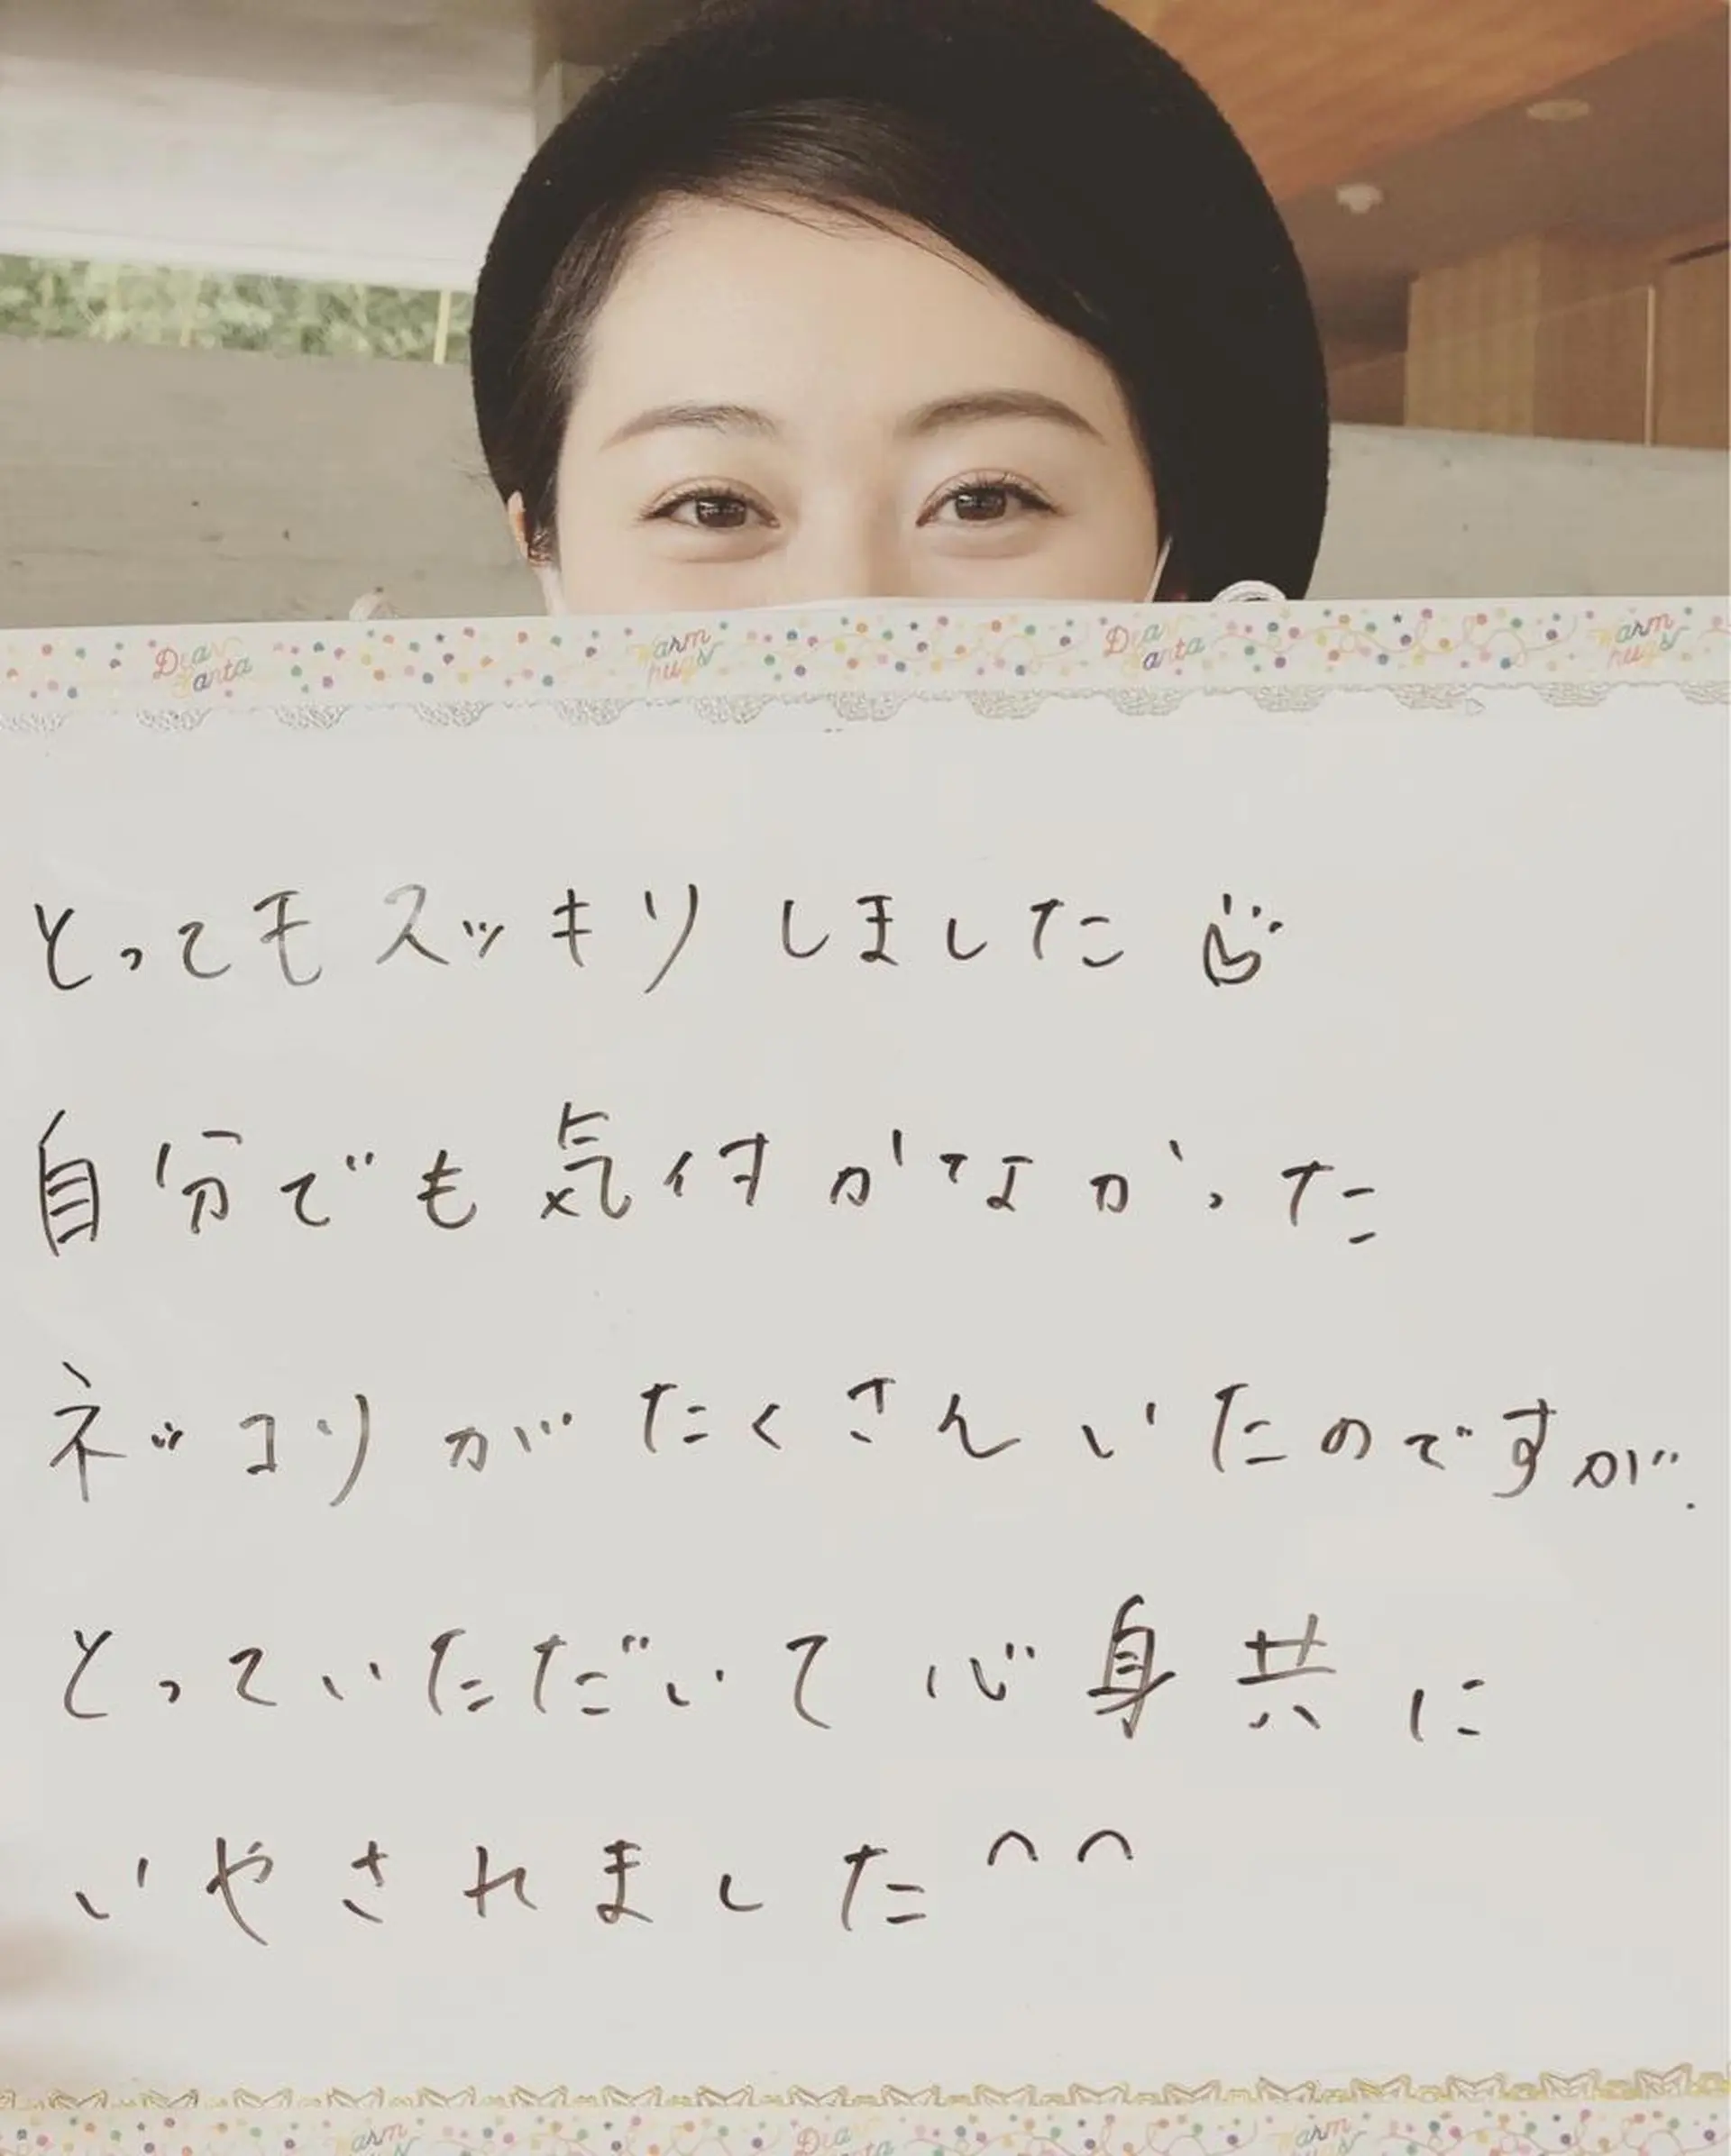 Dear Santa Warm hugs Dear Santa Warm hugs
とってもスッキリしました
自分でも気付かなかった
ネッコリがたくさんいたのですが.
とっていただいて心身共に
いやされました^^
Warm hugs Dear Santa Warm hugs